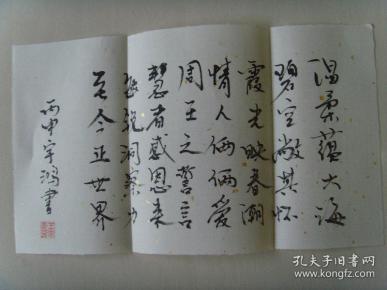 温柔蕴大海
碧空敞其怀
霞光映春潮
情人俩俩爱
周王之誓言
慧者感恩来
洞察力
至今正世界
丙申宇鸿书
孔夫子旧书网